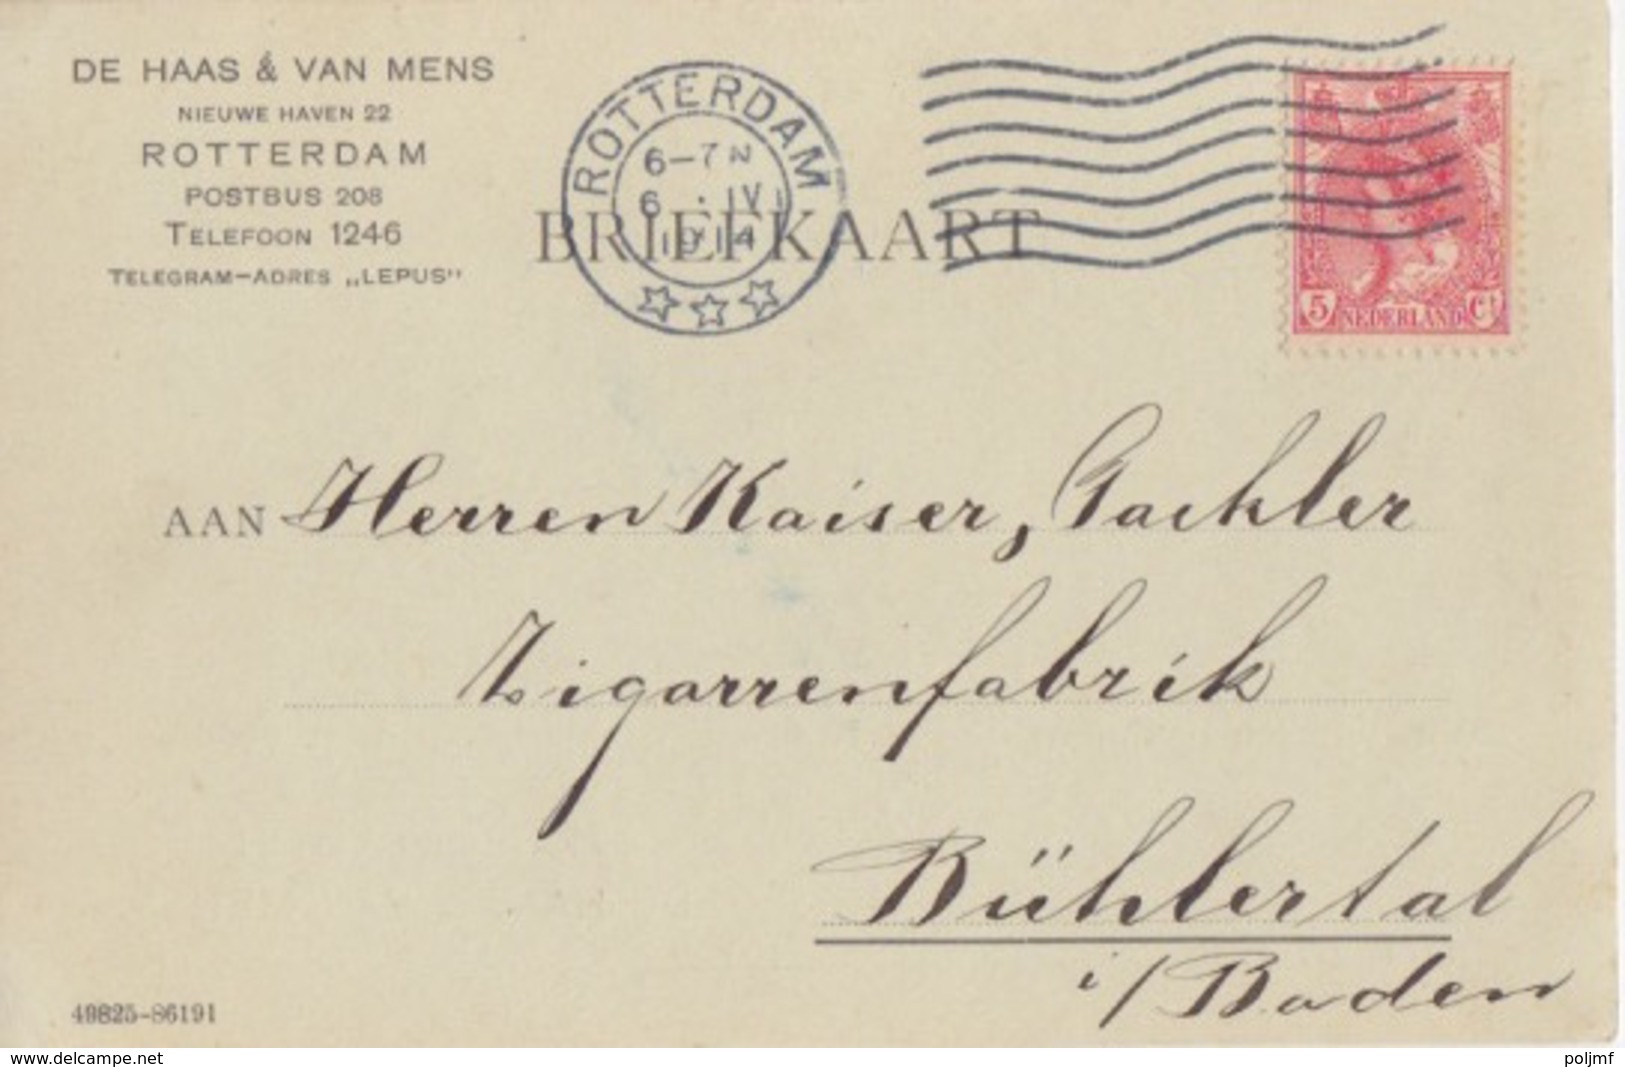 DE HAAS & VAN MENS
NIEUWE HAVEN 22
ROTTERDAM
POSTBUS 208
TELEFOON 1246
TELEGRAM-ADRES „LEPUS"
ROTTERDAM
6-7 N
6 . IV
1914
BRIEFKAART
5 NEDERLAND Ct
AAN Herren Kaiser, Gackler
Zigarrenfabrik
Bühlertal
i/Baden
49825-86191
www.delcampe.net
poljmf